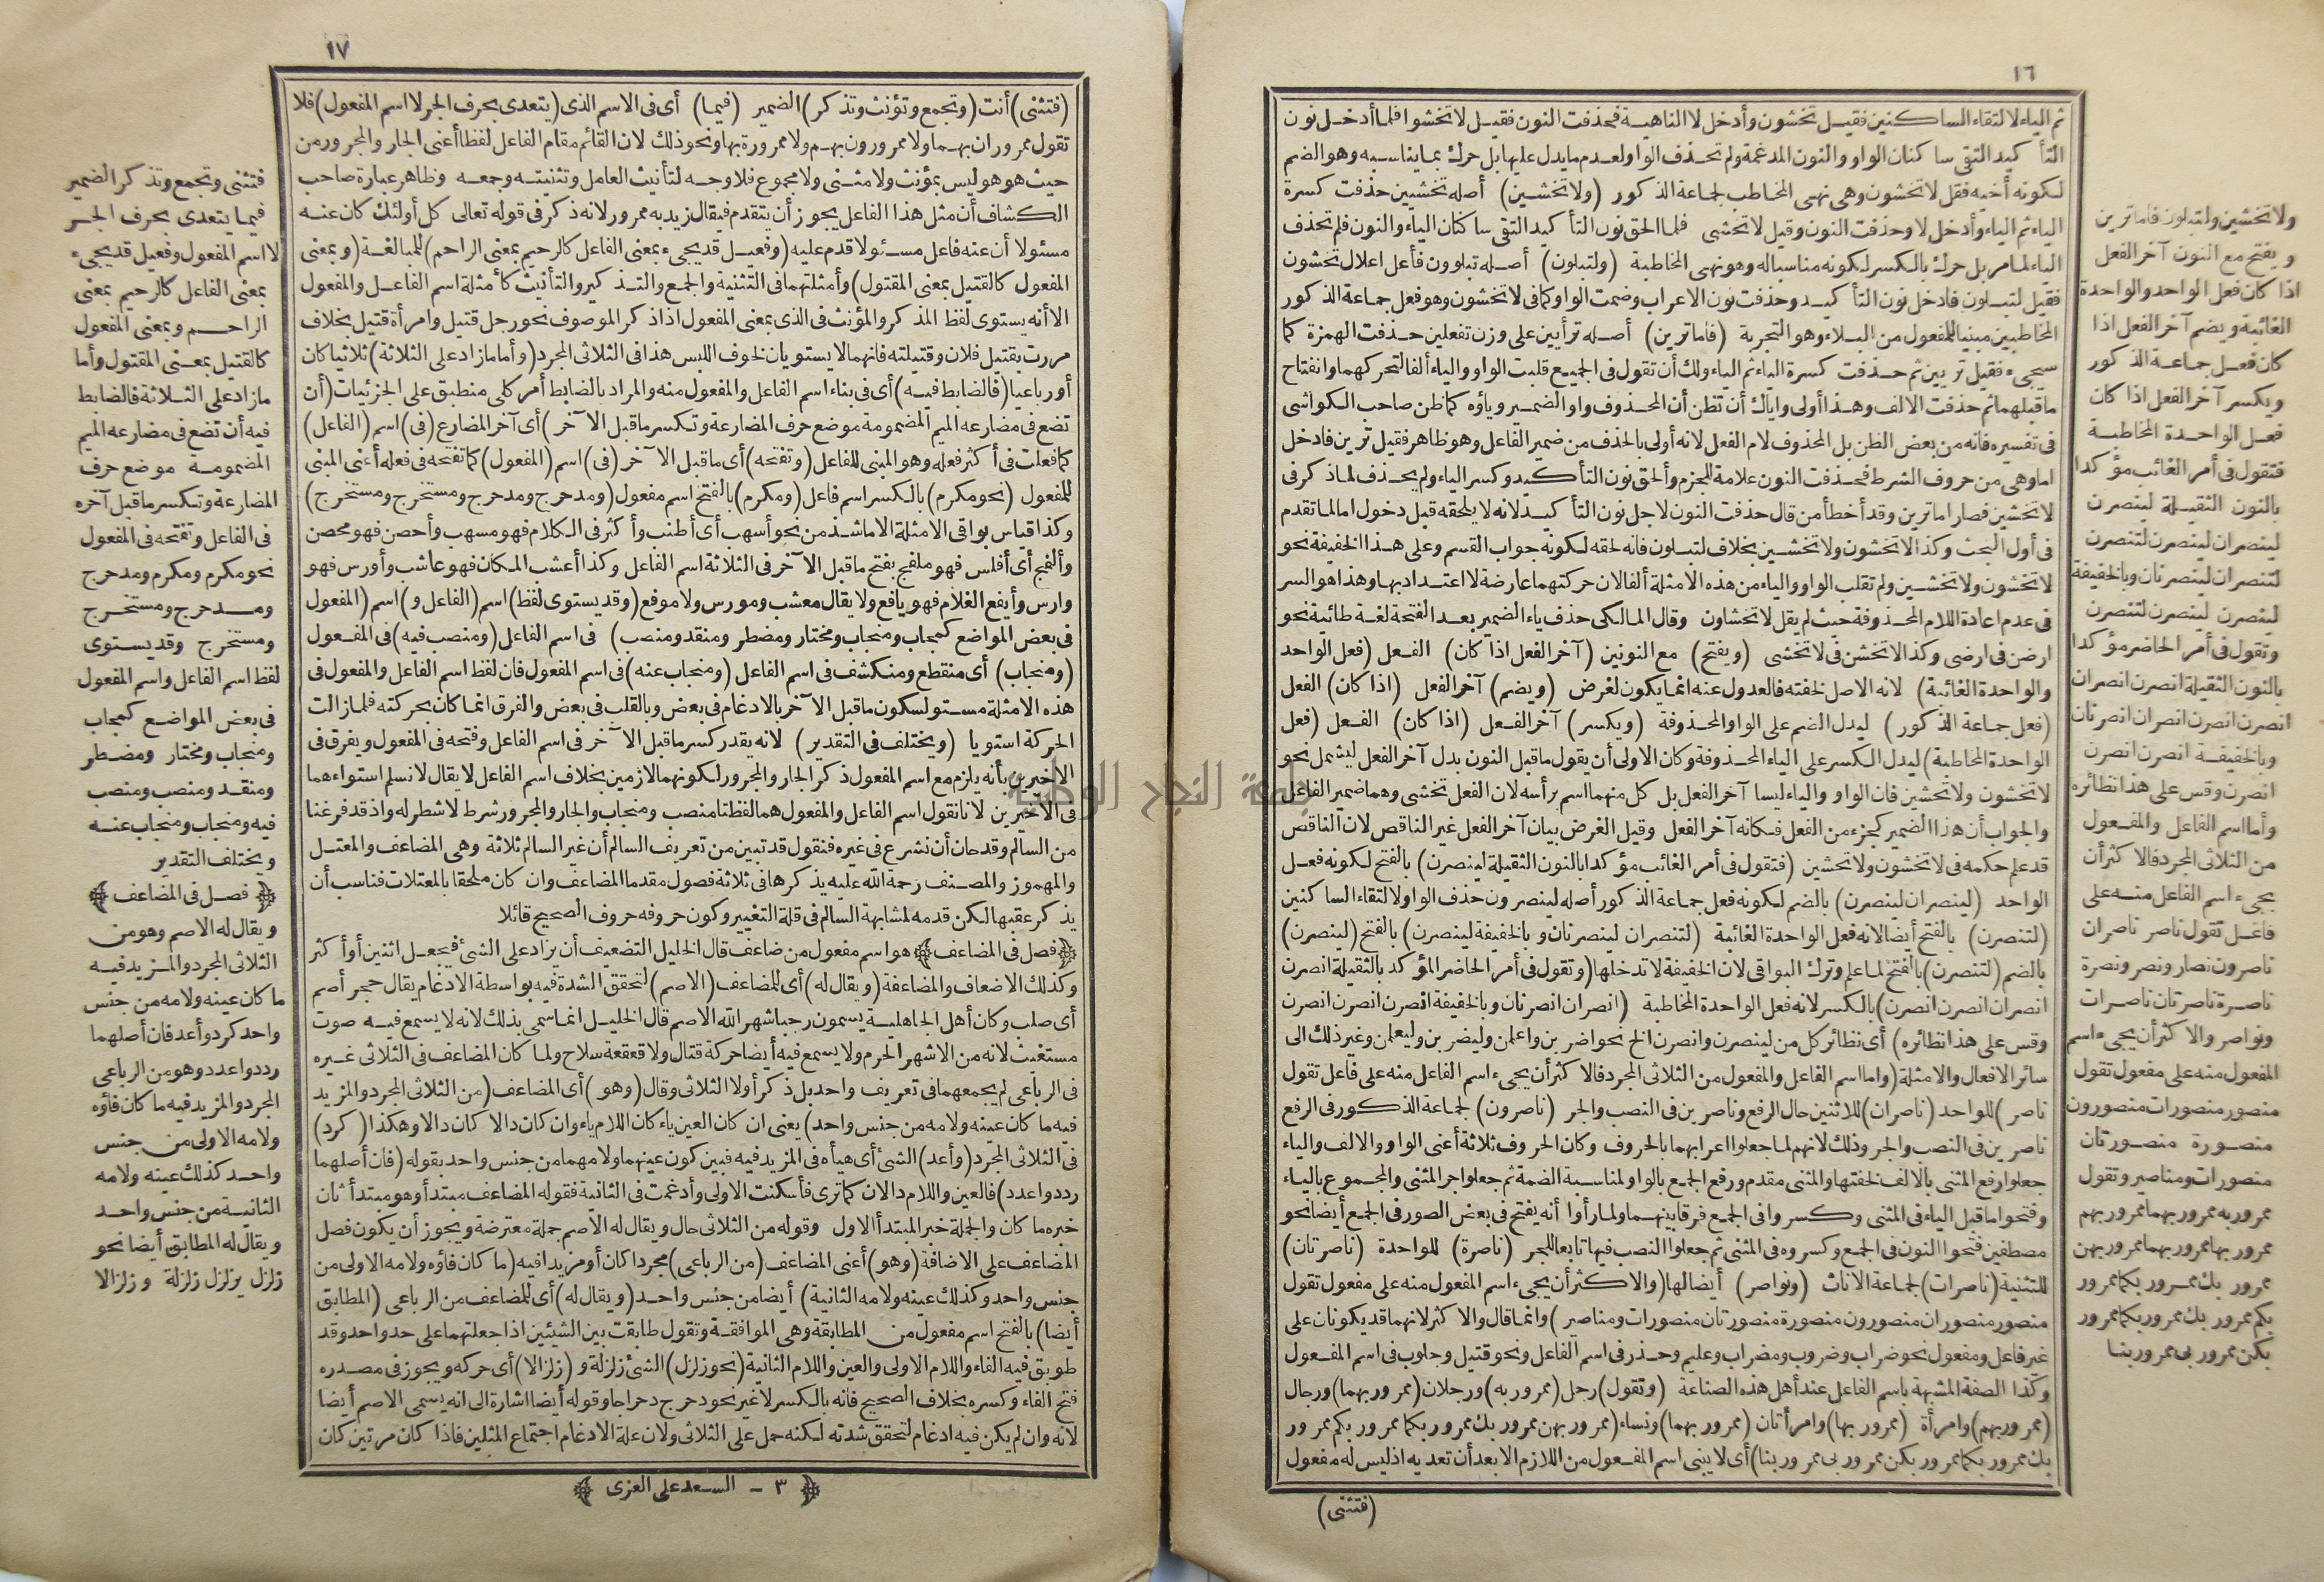 ١٦
ثم الياء لالتقاء الساكنين فقيل تخشون وأدخل لا الناهية فحذفت النون فقيل لا تخشوا فلما أدخل نون
التأكيد التقى ساكنان الواو والنون المدغمة ولم تحذف الواو لعدم ما يدل عليها بل حرك بما يناسبه وهو الضم
لكونه أخيه فقل لا تخشون وهى نهى المخاطب لجماعة الذكور (ولا تخشين) أصله تخشيين حذفت كسرة
الياء ثم الياء وأدخل لا وحذفت النون وقيل لا تخشى فلما الحق نون التأكيد التقى ساكنان الياء والنون فلم تحذف
الياء لما مر بل حرك بالكسر لكونه مناسبا له وهو نهى المخاطبة (ولتبلون) أصله تبلوون فأعل اعلال تخشون
فقيل لتبلون فادخل نون التأكيد وحذفت نون الاعراب وضمت الواو كما فى لا تخشون وهو فعل جماعة الذكور
المخاطبين مبنيا للمفعول من البلاء وهو التجربة (فاما ترين) أصله ترأيين على وزن تفعلين حذفت الهمزة كما
سيجىء فقيل تريين ثم حذفت كسرة الياء ثم الياء ولك أن تقول فى الجميع قلبت الواو والياء ألفا لتحركهما وانفتاح
ما قبلهما ثم حذفت الالف وهذا أولى واياك أن تظن أن المحذوف واو الضمير وياؤه كما ظن صاحب الكواشى
فى تفسيره فانه من بعض الظن بل المحذوف لام الفعل لانه أولى بالحذف من ضمير الفاعل وهو ظاهر فقيل ترين فادخل
اما وهى من حروف الشرط فحذفت النون علامة للجزم وألحق نون التأكيد وكسر الياء ولم يحذف لما ذكر فى
لا تخشين فصار اما ترين وقد أخطأ من قال حذفت النون لاجل نون التأكيد لانه لا يلحقه قبل دخول اما لما تقدم
فى أول البحث وكذا لا تخشون ولا تخشين بخلاف لتبلون فانه لحقه لكونه جواب القسم وعلى هذا الخفيفة نحو
لا تخشون ولا تخشين ولم تقلب الواو والياء من هذه الامثلة ألفا لان حركتهما عارضة لا اعتداد بها وهذا هو السر
فى عدم اعادة اللام المحذوفة حيث لم يقل لا تخشاون وقال المالكى حذف ياء الضمير بعد الفتحة لغة طائية نحو
ارضن فى ارضى وكذا لا تخشن فى لا تخشى (ويفتح) مع النونين (آخر الفعل اذا كان) الفعل (فعل الواحد
والواحدة الغائبة) لانه الاصل لخفته فالعدول عنه انما يكون لغرض (ويضم) آخر الفعل (اذا كان) الفعل
(فعل جماعة الذكور) ليدل الضم على الواو المحذوفة (ويكسر) آخر الفعل (اذا كان) الفعل (فعل
الواحدة المخاطبة) ليدل الكسر على الياء المحذوفة وكان الاولى أن يقول ما قبل النون بدل آخر الفعل ليشمل نحو
لا تخشون ولا تخشين فان الواو والياء ليسا آخر الفعل بل كل منهما اسم برأسه لان الفعل تخشى وهما ضمير الفاعل
والجواب أن هذا الضمير كجزء من الفعل فكانه آخر الفعل وقيل الغرض بيان آخر الفعل غير الناقص لان الناقص
قد علم حكمه فى لا تخشون ولا تخشين (فتقول فى أمر الغائب مؤكدا بالنون الثقيلة لينصرن) بالفتح لكونه فعل
الواحد (لينصران لينصرن) بالضم لكونه فعل جماعة الذكور أصله لينصرون حذف الواو لالتقاء الساكنين
(لتنصرن) بالفتح أيضا لانه فعل الواحدة الغائبة (لتنصران لينصرنان وبالخفيفة لينصرن) بالفتح (لينصرن)
بالضم (لتنصرن) بالفتح لما علم وترك البواقى لان الخفيفة لا تدخلها (وتقول فى أمر الحاضر المؤكد بالثقيلة انصرن
انصران انصرن انصرن) بالكسر لانه فعل الواحدة المخاطبة (انصران انصرنان وبالخفيفة انصرن انصرن انصرن
وقس على هذا نظائره) أى نظائر كل من لينصرن وانصرن الخ نحو اضربن واعلمن وليضربن وليعلمن وغير ذلك الى
سائر الافعال والامثلة (واما اسم الفاعل والمفعول من الثلاثى المجرد فالاكثر أن يجىء اسم الفاعل منه على فاعل تقول
ناصر) للواحد (ناصران) للاثنين حال الرفع وناصرين فى النصب والجر (ناصرون) لجماعة الذكور فى الرفع
ناصرين فى النصب والجر وذلك لانهم لما جعلوا اعرابهما بالحروف وكان الحروف ثلاثة أعنى الواو والالف والياء
جعلوا رفع المثنى بالالف لخفتها والمثنى مقدم ورفع الجمع بالواو لمناسبة الضمة ثم جعلوا جر المثنى والمجموع بالياء
وفتحوا ما قبل الياء فى المثنى وكسروا فى الجمع فرقا بينهما ولما رأوا أنه يفتح فى بعض الصور فى الجمع أيضا نحو
مصطفين فتحوا النون فى الجمع وكسروه فى المثنى ثم جعلوا النصب فيها تابعا للجر (ناصرة) للواحدة (ناصرتان)
للتثنية (ناصرات) لجماعة الاناث (ونواصر) أيضا لها (والاكثر أن يجىء اسم المفعول منه على مفعول تقول
منصور منصوران منصورون منصورة منصورتان منصورات ومناصر) وانما قال والاكثر لانهما قد يكونان على
غير فاعل ومفعول نحو ضراب وضروب ومضراب وعليم وحذر فى اسم الفاعل ونحو قتيل وحلوب فى اسم المفعول
وكذا الصفة المشبهة باسم الفاعل عند أهل هذه الصناعة (وتقول) رجل (ممرور به) ورجلان (ممرور بهما) ورجال
(ممرور بهم) وامرأة (ممرور بها) وامرأتان (ممرور بهما) ونساء (ممرور بهن ممرور بك ممرور بكما ممرور بكم ممرور
بك ممرور بكما ممرور بكن ممرور بى ممرور بنا) أى لا يبنى اسم المفعول من اللازم الا بعد أن تعديه اذ ليس له مفعول
(فتثنى)
ولا تخشين ولتبلون فاما ترين
ويفتح مع النون آخر الفعل
اذا كان فعل الواحد والواحدة
الغائبة ويضم آخر الفعل اذا
كان فعل جماعة الذكور
ويكسر آخر الفعل اذا كان
فعل الواحدة المخاطبة
فتقول فى أمر الغائب مؤكدا
بالنون الثقيلة لينصرن
لينصران لينصرن لتنصرن
لتنصران لينصرنان وبالخفيفة
لينصرن لينصرن لتنصرن
وتقول فى أمر الحاضر مؤكدا
بالنون الثقيلة انصرن انصران
انصرن انصرن انصران انصرنان
وبالخفيفة انصرن انصرن
انصرن وقس على هذا نظائره
وأما اسم الفاعل والمفعول
من الثلاثى المجرد فالاكثر أن
يجىء اسم الفاعل منه على
فاعل تقول ناصر ناصران
ناصرون نصار ونصر ونصرة
ناصرة ناصرتان ناصرات
ونواصر والاكثر أن يجىء اسم
المفعول منه على مفعول تقول
منصور منصورات منصورون
منصورة منصورتان
منصورات ومناصير وتقول
ممرور به ممرور بهما ممرور بهم
ممرور بها ممرور بهما ممرور بهن
ممرور بك ممرور بكما ممرور
بكم ممرور بك ممرور بكما ممرور
بكن ممرور بى ممرور بنا
١٧
(فتثنى) أنت (وتجمع وتؤنث وتذكر) الضمير (فيما) أى فى الاسم الذى (يتعدى بحرف الجر لا اسم المفعول) فلا
تقول ممروران بهما ولا ممرورون بهم ولا ممرورة بها ونحو ذلك لان القائم مقام الفاعل لفظا أعنى الجار والمجرور من
حيث هو هو ليس بمؤنث ولا مثنى ولا مجموع فلا وجه لتأنيث العامل وتثنيته وجمعه وظاهر عبارة صاحب
الكشاف أن مثل هذا الفاعل يجوز أن يتقدم فيقال زيد به ممرور لانه ذكر فى قوله تعالى كل أولئك كان عنه
مسئولا أن عنه فاعل مسئولا قدم عليه (وفعيل قد يجىء بمعنى الفاعل كالرحيم بمعنى الراحم) للمبالغة (وبمعنى
المفعول كالقتيل بمعنى المقتول) وأمثلتهما فى التثنية والجمع والتذكير والتأنيث كأمثلة اسم الفاعل والمفعول
الا أنه يستوى لفظ المذكر والمؤنث فى الذى بمعنى المفعول اذا ذكر الموصوف نحو رجل قتيل وامرأة قتيل بخلاف
مررت بقتيل فلان وقتيلته فانهما لا يستويان لخوف اللبس هذا فى الثلاثى المجرد (وأما ما زاد على الثلاثة) ثلاثيا كان
أو رباعيا (فالضابط فيه) أى فى بناء اسم الفاعل والمفعول منه والمراد بالضابط أمر كلى منطبق على الجزئيات (أن
تضع فى مضارعه الميم المضمومة موضع حرف المضارعة وتكسر ما قبل الآخر) أى آخر المضارع (فى) اسم (الفاعل)
كما فعلت فى أكثر فعله وهو المبنى للفاعل (وتفتحه) أى ما قبل الآخر (فى) اسم (المفعول) كما تفتحه فى فعله أعنى المبنى
للمفعول (نحو مكرم) بالكسر اسم فاعل (ومكرم) بالفتح اسم مفعول (ومدحرج ومدحرج ومستخرج ومستخرج)
وكذا قياس بواقى الامثلة الا ما شذ من نحو أسهب أى أطنب وأكثر فى الكلام فهو مسهب وأحصن فهو محصن
وألفج أى أفلس فهو ملفج بفتح ما قبل الآخر فى الثلاثة اسم الفاعل وكذا أعشب المكان فهو عاشب وأورس فهو
وارس وأيفع الغلام فهو يافع ولا يقال معشب ومورس ولا موفع (وقد يستوى لفظ) اسم (الفاعل و) اسم (المفعول
فى بعض المواضع كمجاب ومنجاب ومختار ومضطر ومنقد ومنصب) فى اسم الفاعل (ومنصب فيه) فى المفعول
(ومنجاب) أى منقطع ومنكشف فى اسم الفاعل (ومنجاب عنه) فى اسم المفعول فان لفظ اسم الفاعل والمفعول فى
هذه الامثلة مستو لسكون ما قبل الآخر بالادغام فى بعض وبالقلب فى بعض والفرق انما كان بحركته فلما زالت
الحركة استويا (ويختلف فى التقدير) لانه يقدر كسر ما قبل الآخر فى اسم الفاعل وفتحه فى المفعول ويفرق فى
الاخيرين بأنه يلزم مع اسم المفعول ذكر الجار والمجرور لكونهما لازمين بخلاف اسم الفاعل لا يقال لا نسلم استواءهما
فى الاخيرين لانا نقول اسم الفاعل والمفعول هما لفظتا منصب ومنجاب والجار والمجرور شرط لا شطر له واذ قد فرغنا
من السالم وقد حان أن نشرع فى غيره فنقول قد تبين من تعريف السالم أن غير السالم ثلاثة وهى المضاعف والمعتل
والمهموز والمصنف رحمة الله عليه يذكرها فى ثلاثة فصول مقدما المضاعف وان كان ملحقا بالمعتلات فناسب أن
يذكر عقبها لكن قدمه لمشابهة السالم فى قلة التغيير وكون حروفه حروف الصحيح قائلا
﴿فصل فى المضاعف﴾ هو اسم مفعول من ضاعف قال الخليل التضعيف أن يزاد على الشئ فيجعل اثنين أو أكثر
وكذلك الاضعاف والمضاعفة (ويقال له) أى للمضاعف (الاصم) لتحقق الشدة فيه بواسطة الادغام يقال حجر أصم
أى صلب وكان أهل الجاهلية يسمون رجبا شهر الله الاصم قال الخليل انما سمى بذلك لانه لا يسمع فيه صوت
مستغيث لانه من الاشهر الحرم ولا يسمع فيه أيضا حركة قتال ولا قعقعة سلاح ولما كان المضاعف فى الثلاثى غيره
فى الرباعى لم يجمعهما فى تعريف واحد بل ذكر أولا الثلاثى وقال (وهو) أى المضاعف (من الثلاثى المجرد والمزيد
فيه ما كان عينه ولامه من جنس واحد) يعنى ان كان العين ياء كان اللام ياء وان كان دالا كان دالا وهكذا (كرد)
فى الثلاثى المجرد (وأعد) الشئ أى هيأه فى المزيد فيه فبين كون عينهما ولامهما من جنس واحد بقوله (فان أصلهما
ردد واعدد) فالعين واللام دالان كما ترى فأسكنت الاولى وأدغمت فى الثانية فقوله المضاعف مبتدأ وهو مبتدأ ثان
خبره ما كان والجملة خبر المبتدأ الاول وقوله من الثلاثى حال ويقال له الاصم جملة معترضة ويجوز أن يكون فصل
المضاعف على الاضافة (وهو) أعنى المضاعف (من الرباعى) مجردا كان أو مزيدا فيه (ما كان فاؤه ولامه الاولى من
جنس واحد وكذلك عينه ولامه الثانية) أيضا من جنس واحد (ويقال له) أى للمضاعف من الرباعى (المطابق
أيضا) بالفتح اسم مفعول من المطابقة وهى الموافقة وتقول طابقت بين الشيئين اذا جعلتهما على حد واحد وقد
طوبق فيه الفاء واللام الاولى والعين واللام الثانية (نحو زلزل) الشئ زلزلة و (زلزالا) أى حركه ويجوز فى مصدره
فتح الفاء وكسره بخلاف الصحيح فانه بالكسر لا غير نحو دحرج دحراجا وقوله أيضا اشارة الى انه يسمى الاصم أيضا
لانه وان لم يكن فيه ادغام لتحقق شدته لكنه حمل على الثلاثى ولان علة الادغام اجتماع المثلين فاذا كان مرتين كان
﴿ ٣ - السعد على العزى ﴾
فتثنى وتجمع وتذكر الضمير
فيما يتعدى بحرف الجر
لا اسم المفعول وفعيل قد يجىء
بمعنى الفاعل كالرحيم بمعنى
الراحم وبمعنى المفعول
كالقتيل بمعنى المقتول وأما
ما زاد على الثلاثة فالضابط
فيه أن تضع فى مضارعه الميم
المضمومة موضع حرف
المضارعة وتكسر ما قبل آخره
فى الفاعل وتفتحه فى المفعول
نحو مكرم ومكرم ومدحرج
ومدحرج ومستخرج
ومستخرج وقد يستوى
لفظ اسم الفاعل واسم المفعول
فى بعض المواضع كمجاب
ومنجاب ومختار ومضطر
ومنقد ومنصب ومنصب
فيه ومنجاب ومنجاب عنه
ويختلف التقدير
﴿ فصل فى المضاعف ﴾
ويقال له الاصم وهو من
الثلاثى المجرد والمزيد فيه
ما كان عينه ولامه من جنس
واحد كرد وأعد فان أصلهما
ردد واعدد وهو من الرباعى
المجرد والمزيد فيه ما كان فاؤه
ولامه الاولى من جنس
واحد كذلك عينه ولامه
الثانية من جنس واحد
ويقال له المطابق أيضا نحو
زلزل يزلزل زلزلة وزلزالا